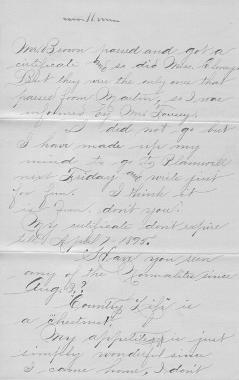 Mr. Brown passed and got a
certificate and so did Miss
But they were the only ones that
passed from Martin, so I was
informed by Mrs. Tousey.
I did not go but
I have made up my
mind to go to Plainwell
next Friday and write just
for fun. I think it
is fun. don't you?
My certificate don't expire
till April 7, 1895.
Have you seen
any of the Normalites since
Aug. 3,?
"Country Life" is
a "chestnut,"
My appetite is just
simply wonderful since
I came home, I don't